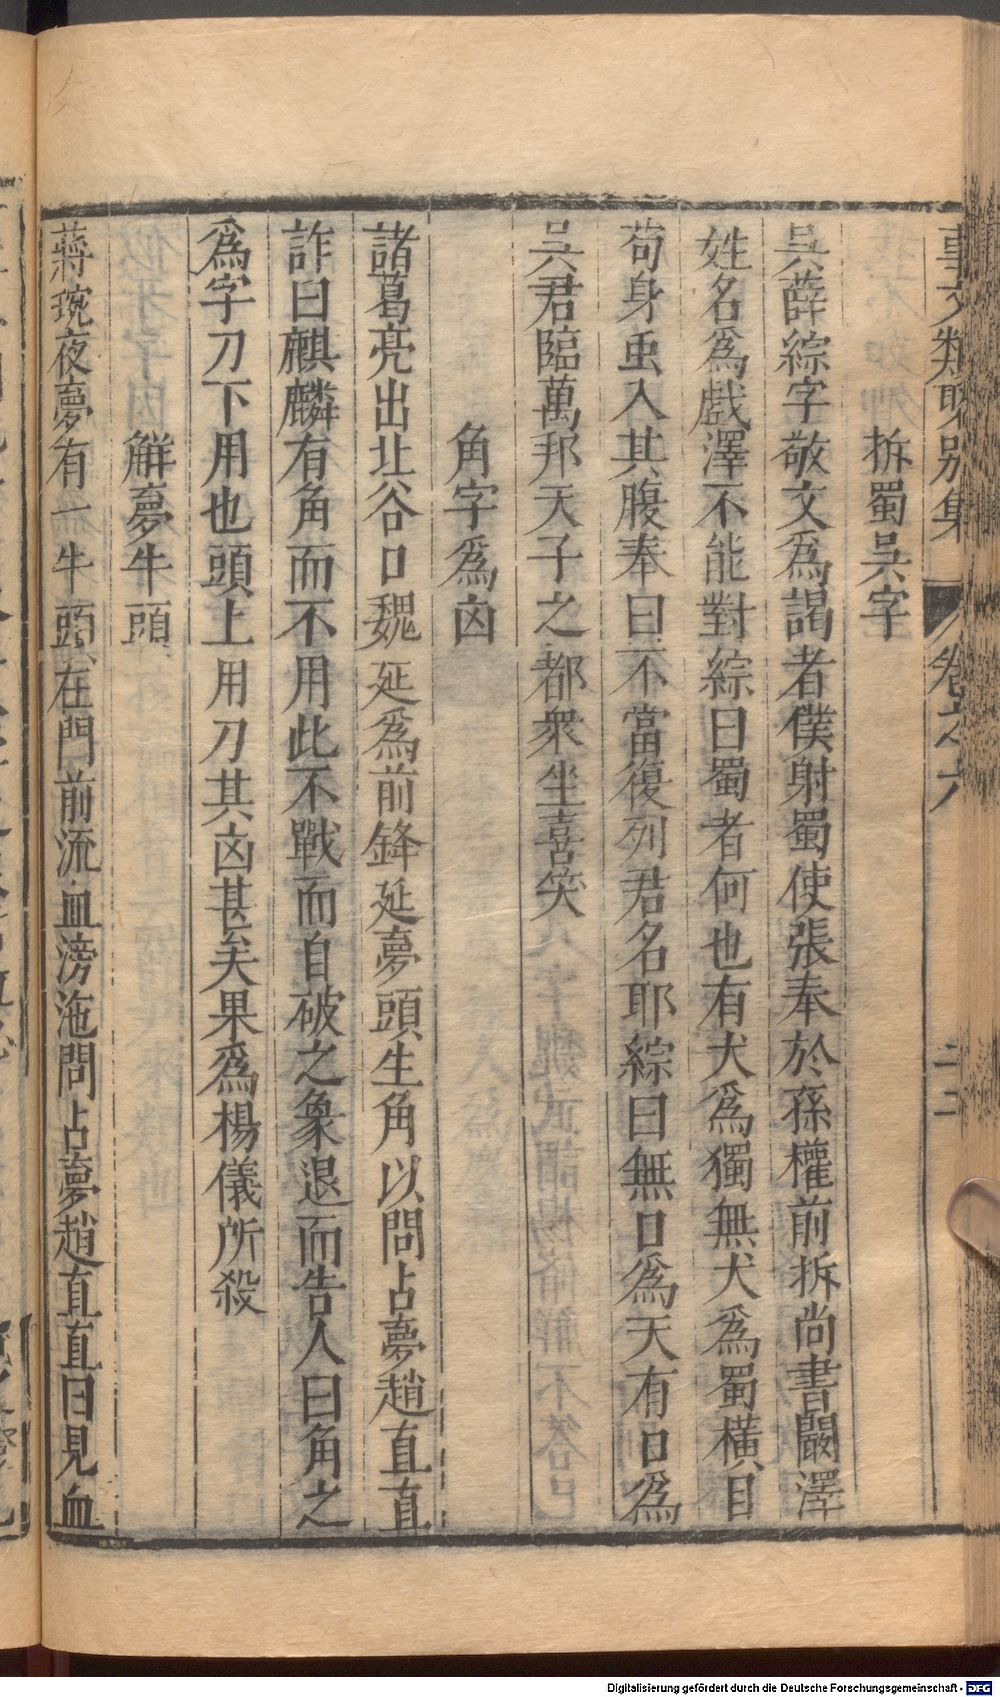 事文類聚別集 卷之六 二十二
拆蜀吳字
吳薛綜字敬文爲謁者僕射蜀使張奉於孫權前拆尚書闞澤
姓名爲戲澤不能對綜曰蜀者何也有犬爲獨無犬爲蜀橫目
苟身虫入其腹奉曰不當復列君名耶綜曰無口爲天有口爲
吳君臨萬邦天子之都衆坐喜笑
角字爲凶
諸葛亮出北谷口魏延爲前鋒延夢頭生角以問占夢趙直直
詐曰麒麟有角而不用此不戰而自破之象退而告人曰角之
爲字刀下用也頭上用刀其凶甚矣果爲楊儀所殺
解夢牛頭
蔣琬夜夢有一牛頭在門前流血滂沲問占夢趙直直曰見血
Digitalisierung gefördert durch die Deutsche Forschungsgemeinschaft - DFG